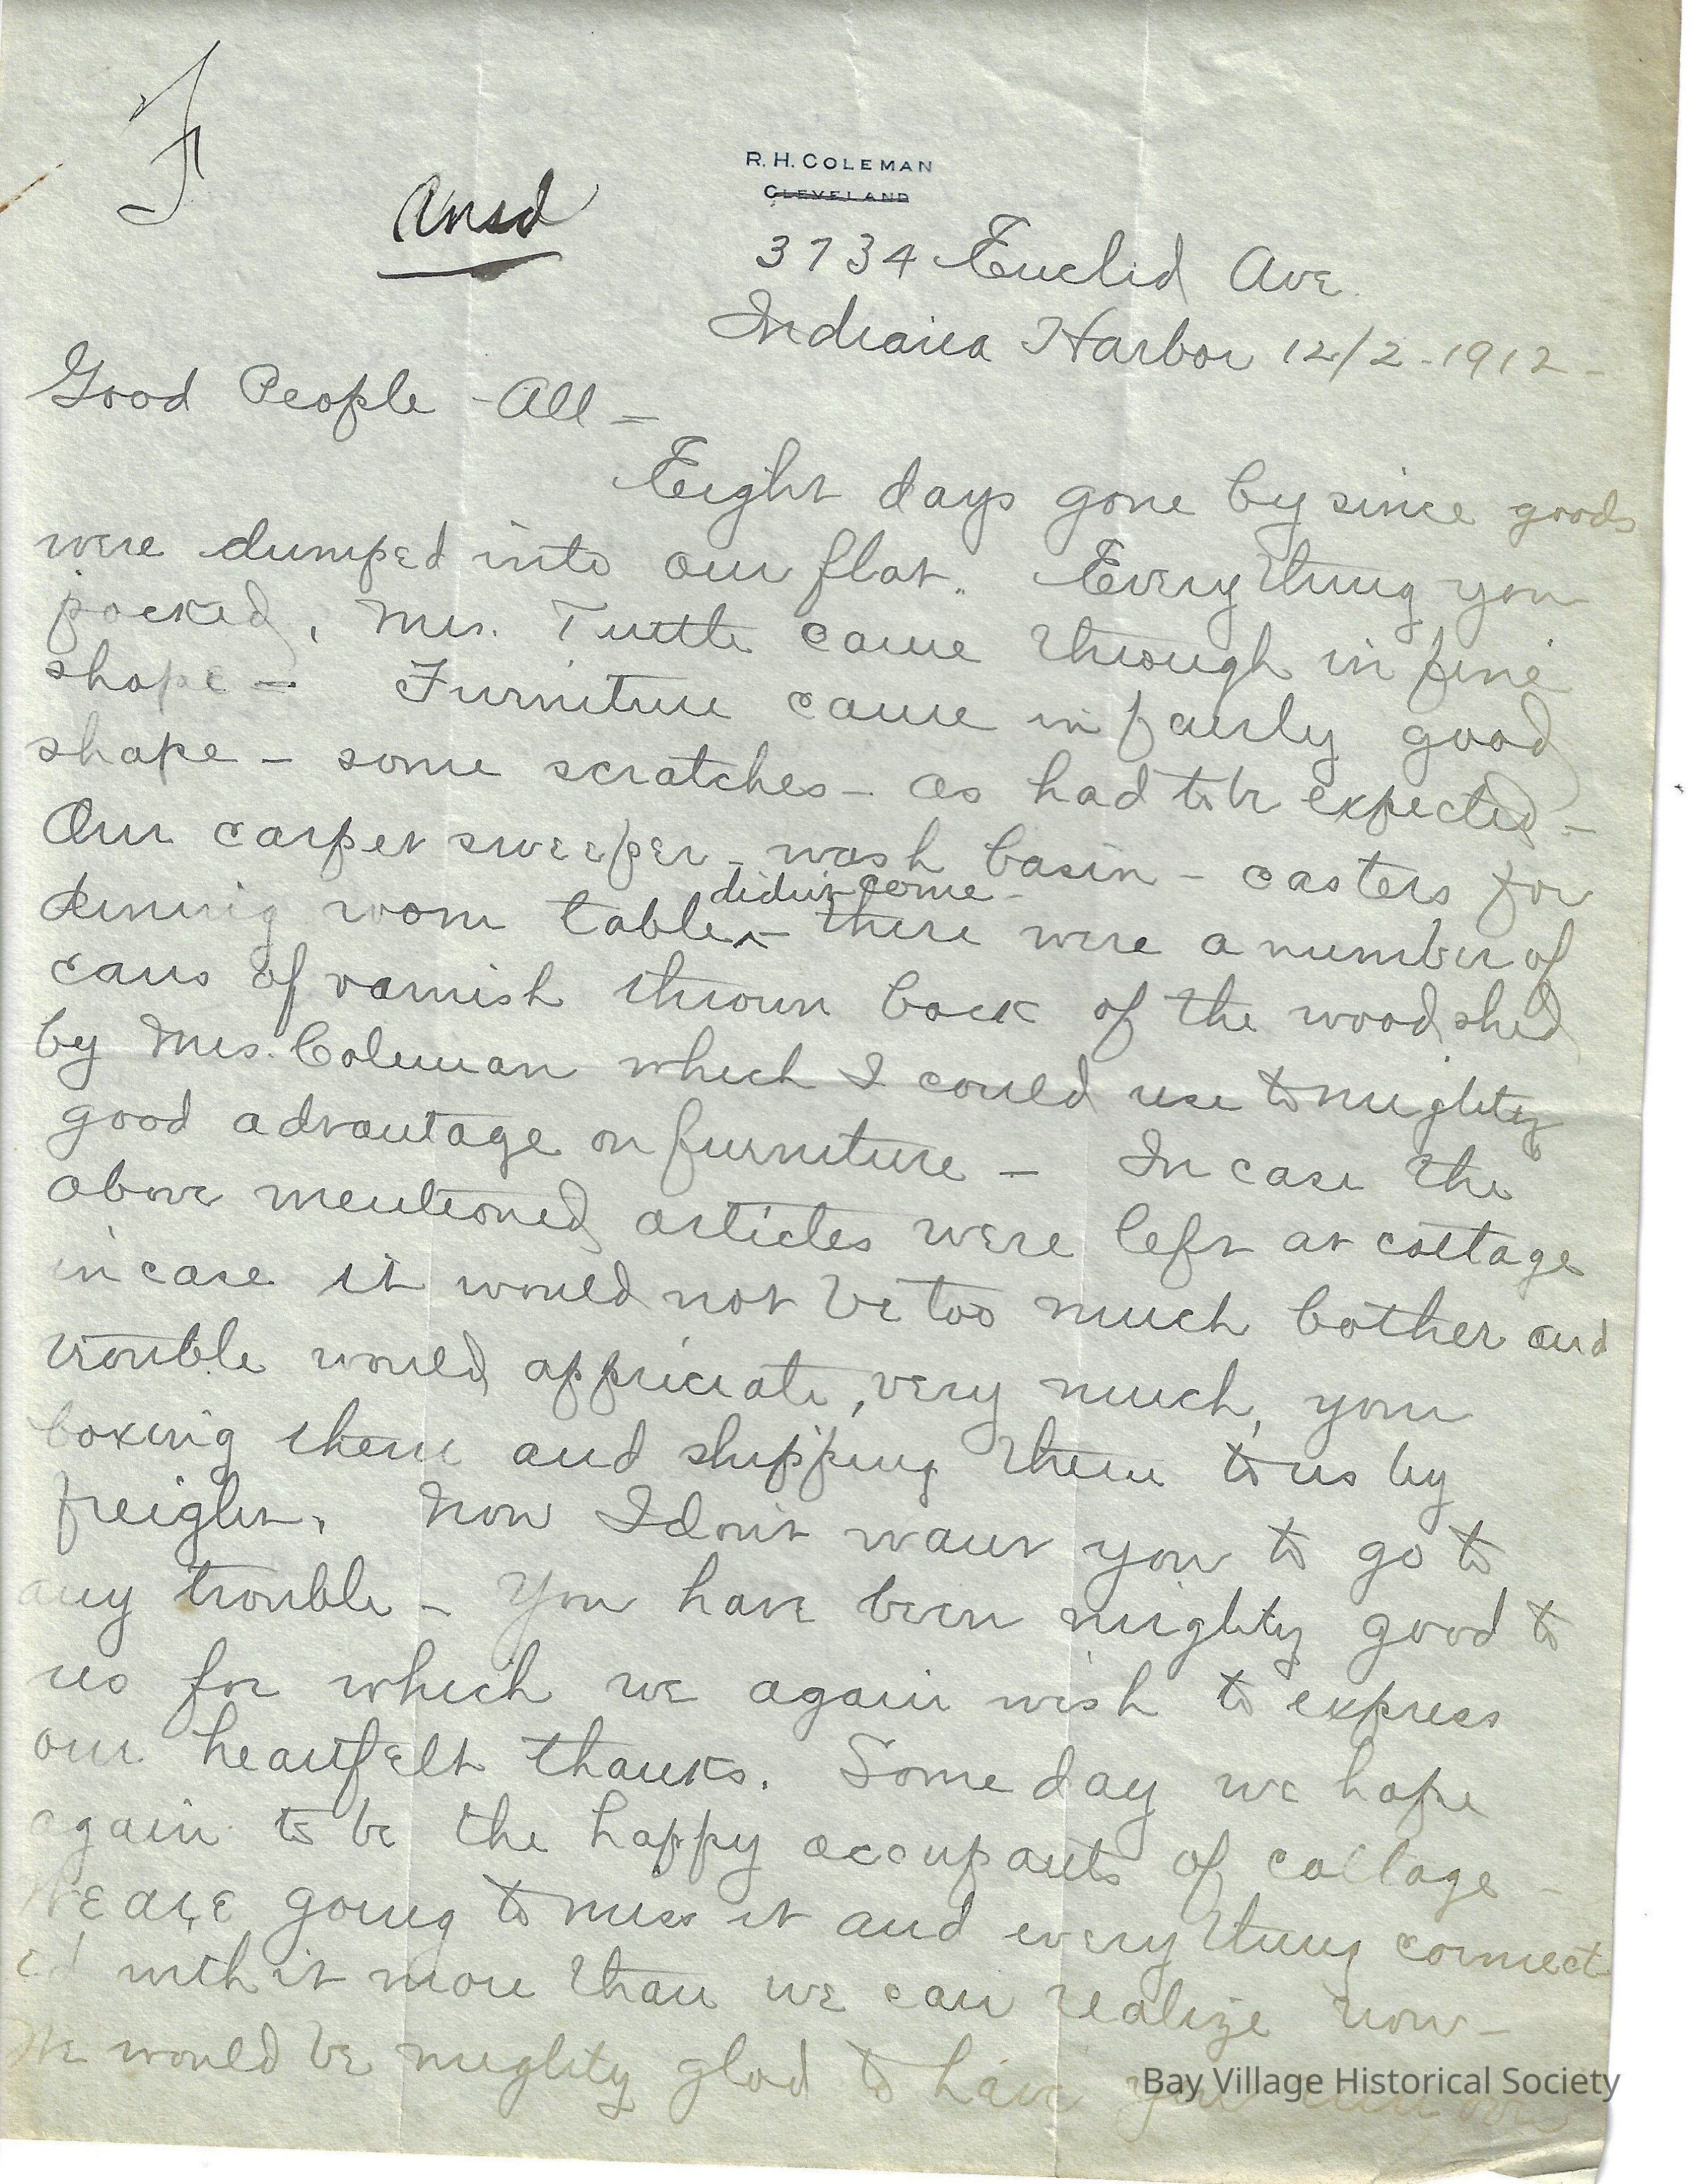 F
Ansd
R. H. COLEMAN
CLEVELAND
3734 Euclid Ave.
Indiana Harbor 12/2-1912-
Good People - All -
Eight days gone by since goods
were dumped into our flat. Everything you
packed, Mrs. Tuttle came through in fine
shape - Furniture came in fairly good
shape - some scratches - as had to be expected -
Our carpet sweeper - wash basin - casters for
didn't come -
dinning room table ^ - there were a number of
cans of varnish thrown back of the woodshed
by Mrs. Coleman which I could use to mighty
good advantage on furniture - In case the
above mentioned articles were left at cottage
in case it would not be too much bother and
trouble would appriciate, very much, your
boxing them and shipping them to us by
freight. Now I don't want you to go to
any trouble - You have been mighty good to
us for which we again wish to express
our heartfelt thanks. Some day we hope
again to be the happy occupants of cottage -
We are going to miss it and everything connect
ed with it more than we can realize now -
We would be mighty glad to have you
Bay Village Historical Society